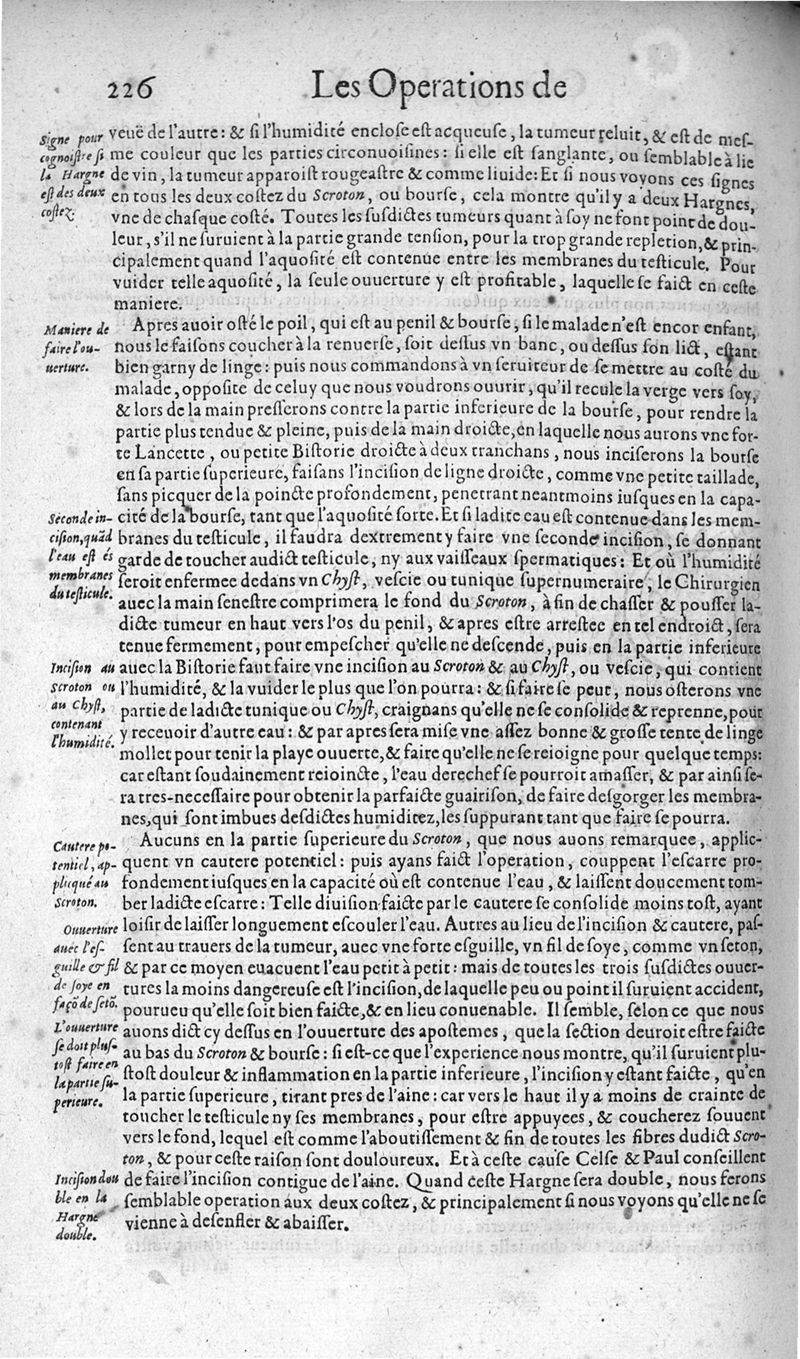 226 Les Operations de
signe pour
cognoistre si
la Hargne
est des deux
costez.
veuë de l'autre: & si l'humidité enclose est acqueuse, la tumeur reluit, & est de mes-
me couleur que les parties circonuoisines: si elle est sanglante, ou semblable à lie
de vin, la tumeur apparoist rougeastre & comme liuide: Et si nous voyons ces signes
en tous les deux costez du Scroton, ou bourse, cela montre qu'il y a deux Hargnes,
vne de chasque costé. Toutes les susdictes tumeurs quant à soy ne font point de dou-
leur, s'il ne suruient à la partie grande tension, pour la trop grande repletion, & prin-
cipalement quand l'aquosité est contenue entre les membranes du testicule. Pour
vuider telle aquosité, la seule ouuerture y est profitable, laquelle se faict en ceste
maniere.
Maniere de
faire l'ou-
uerture.
Apres auoir osté le poil, qui est au penil & bourse, si le malade n'est encor enfant,
nous le faisons coucher à la renuerse, soit dessus vn banc, ou dessus son lict, estant
bien garny de linge: puis nous commandons à vn seruiteur de se mettre au costé du
malade, opposite de celuy que nous voudrons ouurir, qu'il recule la verge vers soy,
& lors de la main presserons contre la partie inferieure de la bourse, pour rendre la
partie plus tendue & pleine, puis de la main droicte, en laquelle nous aurons vne for-
te Lancette, ou petite Bistorie droicte à deux tranchans, nous inciserons la bourse
en sa partie superieure, faisans l'incision de ligne droicte, comme vne petite taillade,
sans picquer de la poincte profondement, penetrant neantmoins iusques en la capa-
cité de la bourse, tant que l'aquosité sorte. Et si ladite eau est contenue dans les mem-
branes du testicule, il faudra dextrement y faire vne seconde incision, se donnant
garde de toucher audict testicule, ny aux vaisseaux spermatiques: Et où l'humidité
seroit enfermee dedans vn Chyst, vescie ou tunique supernumeraire, le Chirurgien
auec la main senestre comprimera le fond du Scroton, à fin de chasser & pousser la-
dicte tumeur en haut vers l'os du penil, & apres estre arrestee en tel endroict, sera
tenue fermement, pour empescher qu'elle ne descende, puis en la partie inferieure
auec la Bistorie faut faire vne incision au Scroton & au Chyst, ou vescie, qui contient
l'humidité, & la vuider le plus que l'on pourra: & si faire se peut, nous osterons vne
partie de ladicte tunique ou Chyst, craignans qu'elle ne se consolide & reprenne, pour
y receuoir d'autre eau: & par apres sera mise vne assez bonne & grosse tente de linge
mollet pour tenir la playe ouuerte, & faire qu'elle ne se reioigne pour quelque temps:
car estant soudainement reioincte, l'eau derechef se pourroit amasser, & par ainsi se-
ra tres-necessaire pour obtenir la parfaicte guairison, de faire desgorger les membra-
nes, qui sont imbues desdictes humiditez, les suppurant tant que faire se pourra.
Seconde in-
cision, quãd
l'eau est és
membranes
du testicule.
Incision au
scroton ou
au Chyst,
contenant
l'humidité.
Cautere po-
tentiel, ap-
pliqué au
Scroton.
Aucuns en la partie superieure du Scroton, que nous auons remarquee, applic-
quent vn cautere potentiel: puis ayans faict l'operation, couppent l'escarre pro-
fondement iusques en la capacité où est contenue l'eau, & laissent doucement tom-
ber ladicte escarre: Telle diuision faicte par le cautere se consolide moins tost, ayant
loisir de laisser longuement escouler l'eau. Autres au lieu de l'incision & cautere, pas-
sent au trauers de la tumeur, auec vne forte esguille, vn fil de soye, comme vn seton,
& par ce moyen euacuent l'eau petit à petit: mais de toutes les trois susdictes ouuer-
tures la moins dangereuse est l'incision, de laquelle peu ou point il suruient accident,
pourueu qu'elle soit bien faicte, & en lieu conuenable. Il semble, selon ce que nous
auons dict cy dessus en l'ouuerture des apostemes, que la section deuroit estre faicte
au bas du Scroton & bourse: si est-ce que l'experience nous montre, qu'il suruient plu-
stost douleur & inflammation en la partie inferieure, l'incision y estant faicte, qu'en
la partie superieure, tirant pres de l'aine: car vers le haut il y a moins de crainte de
toucher le testicule ny ses membranes, pour estre appuyees, & coucherez souuent
vers le fond, lequel est comme l'aboutissement & fin de toutes les fibres dudict Scro-
ton, & pour ceste raison sont douloureux. Et à ceste cause Celse & Paul conseillent
de faire l'incision contigue de l'aine. Quand ceste Hargne sera double, nous ferons
semblable operation aux deux costez, & principalement si nous voyons qu'elle ne se
vienne à desenfler & abaisser.
Ouuerture
auec l'es-
guille & fil
de soye en
façõ de setõ.
L'ouuerture
se doit plus-
tost faire en
la partie su-
perieure.
Incision dou
ble en la
Hargne
double.